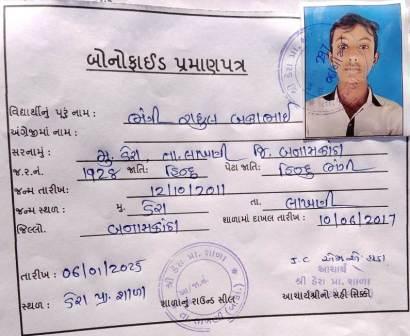 બોનોફાઈડ પ્રમાણપત્ર
વિદ્યાર્થીનું પુરૂં નામ : ભંગી રાહુલ
અંગ્રેજીમાં નામ :
સરનામું : મુ. ડેરા, તા. લાખણી જિ. બનાસકાંઠા
જ.ર.નં. 1928 જાતિ: હિન્દુ પેટા જાતિ: હિન્દુ ભંગી
જન્મ તારીખ: 12/10/2011
જન્મ સ્થળ : મુ. ડેરા તા. લાખણી
જિલ્લો. બનાસકાંઠા શાળામાં દાખલ તારીખ : 10/06/2017
તારીખ : 06/01/2025
સ્થળ : ડેરા પ્રા. શાળા
શાળાનું રાઉન્ડ સીલ
આચાર્ય
શ્રી ડેરા પ્રા. શાળા
આચાર્યશ્રીનો સહી સિક્કો